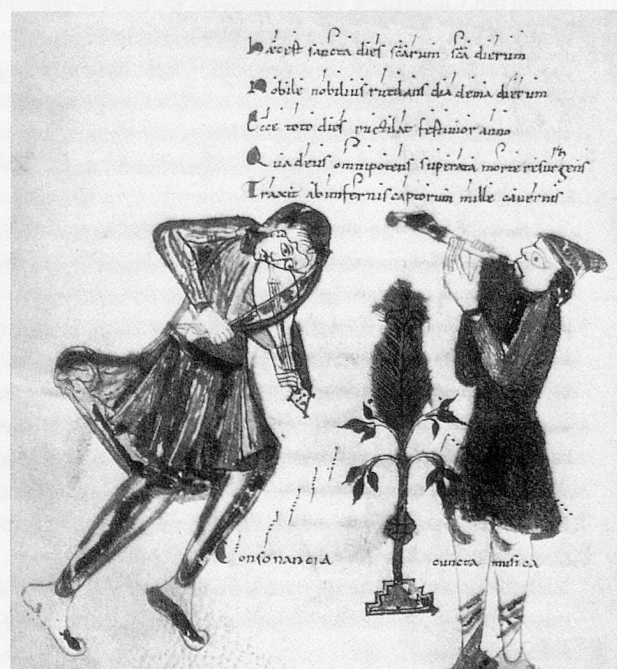 Hęc est sancta dies sc̄arum sc̄a dierum
Nobile nobilius rutilans dia dema dierum
Ecce toto dies rutilat festivior anno
Quia deus omnipotens superata morte resurgens
Traxit ab infernis captorum mille cavernis
Consonancia cuncta musica